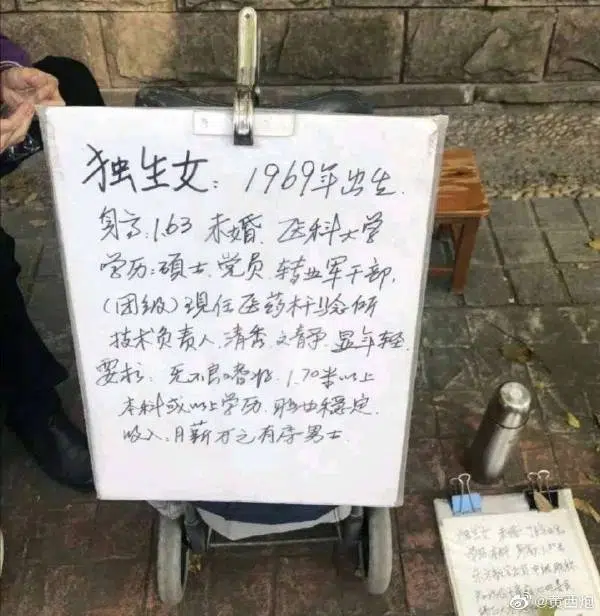 独生女：1969年出生.
身高:1.63 未婚. 医科大学
学历:硕士.党员.转业军干部.
(团级)现任医药检验所
技术负责人.清秀.文静.显年轻.
要求:无不良嗜好.1.70米以上
本科或以上学历.职业稳定.
收入.月薪万元有房男士.
独生女 未婚
学历本科 身高1.
@黄西抱